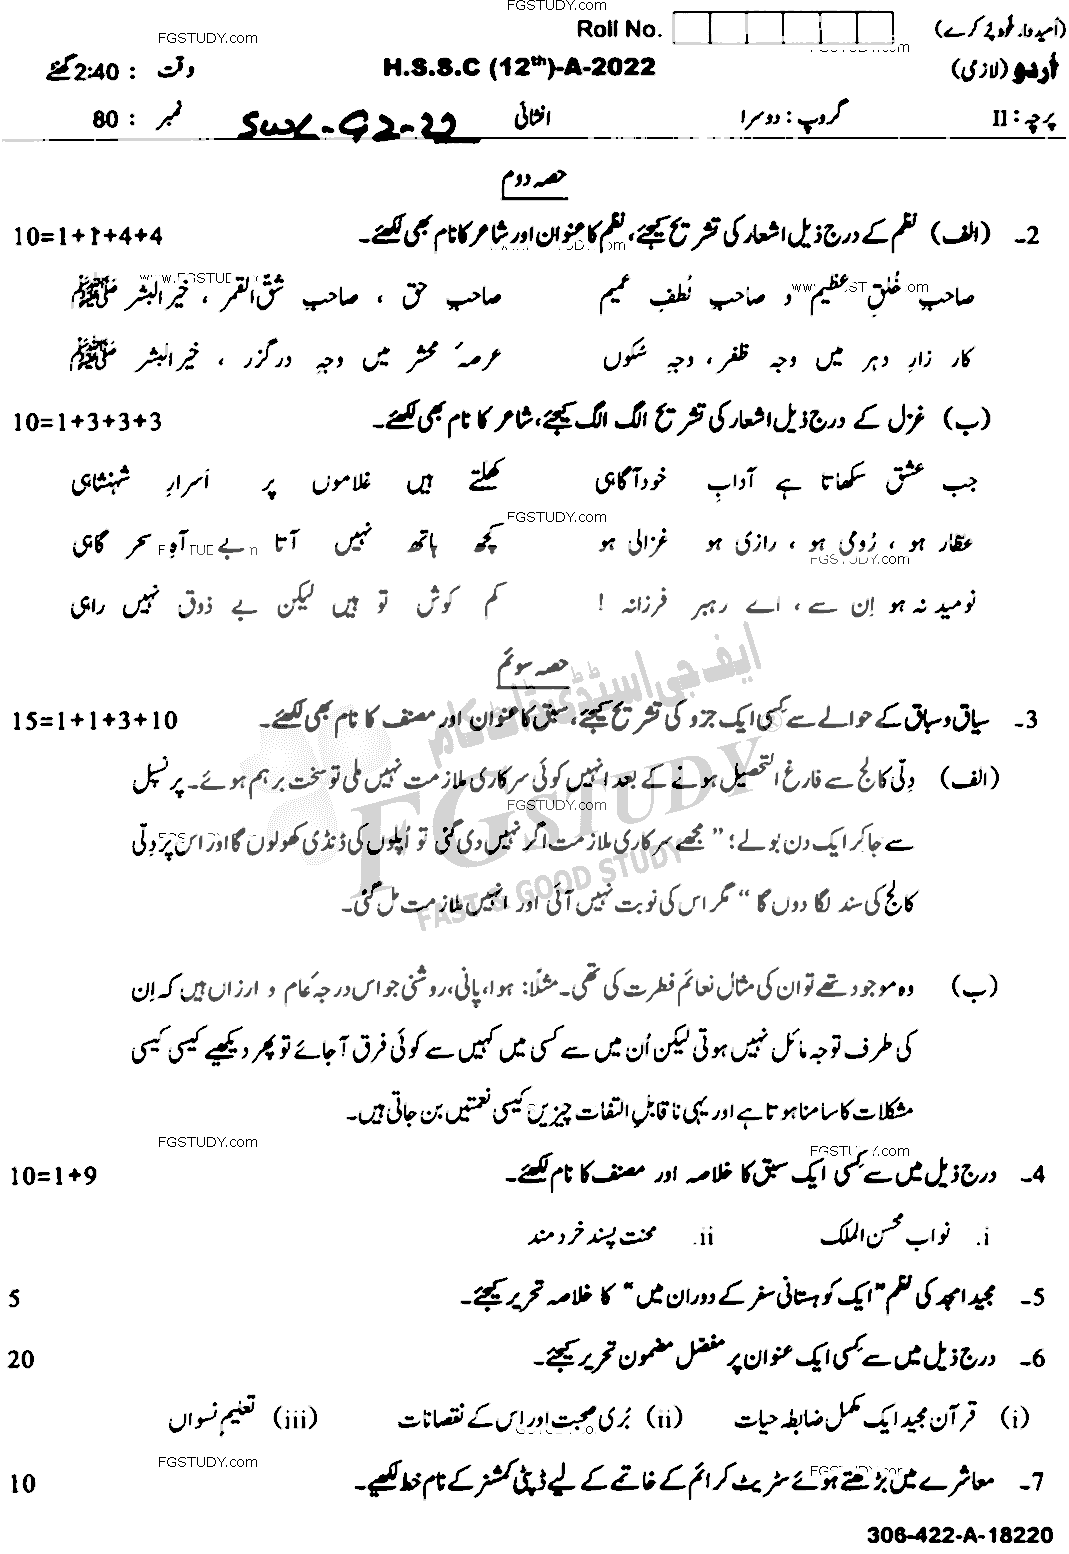 FGSTUDY.com
FGSTUDY.com
Roll No. (اُمیدوار خود پُر کرے)
اُردو (لازمی) H.S.S.C (12th)-A-2022 وقت : 2:40 گھنٹے
پرچہ : II گروپ : دوسرا انشائی نمبر : 80
حصہ دوم
2۔ (الف) نظم کے درج ذیل اشعار کی تشریح کیجئے، نظم کا عنوان اور شاعر کا نام بھی لکھئے۔ 10=1+1+4+4
صاحبِ خُلقِ عظیم و صاحبِ لُطفِ عمیم صاحبِ حق ، صاحبِ شقُّ القمر ، خیرُ البشر ﷺ
کار زارِ دہر میں وجہِ ظفر ، وجہِ سُکوں عرصۂ محشر میں وجہِ درگزر ، خیرُ البشر ﷺ
(ب) غزل کے درج ذیل اشعار کی تشریح الگ الگ کیجئے، شاعر کا نام بھی لکھئے۔ 10=1+3+3+3
جب عشق سکھاتا ہے آدابِ خودآگاہی کھلتے ہیں غلاموں پر اَسرارِ شہنشاہی
FGSTUDY.com
عطّار ہو ، رُومی ہو ، رازی ہو غزالی ہو کچھ ہاتھ نہیں آتا بے آہِ سحر گاہی
FGSTUDY.com
نومید نہ ہو اِن سے ، اے رہبرِ فرزانہ ! کم کوش تو ہیں لیکن بے ذوق نہیں راہی
حصہ سوئم
ایف جی اسٹڈی ڈاٹ کام
3۔ سیاق و سباق کے حوالے سے کِسی ایک جزو کی تشریح کیجئے، سبق کا عنوان اور مصنف کا نام بھی لکھئے۔ 15=1+1+3+10
(الف) دِلّی کالج سے فارغ التحصیل ہونے کے بعد انہیں کوئی سرکاری ملازمت نہیں ملی تو سخت برہم ہوئے۔ پرنسپل
FGSTUDY.com
FGSTUDY
سے جا کر ایک دن بولے؛ "مجھے سرکاری ملازمت اگر نہیں دی گئی تو اُپلوں کی ڈنڈی کھولوں گا اور اس پر دِلّی
FAST & GOOD STUDY
کالج کی سند لگا دوں گا" مگر اس کی نوبت نہیں آئی اور انہیں ملازمت مل گئی۔
(ب) وہ موجود تھے تو ان کی مثال نعائمِ فطرت کی تھی۔ مثلًا: ہوا، پانی، روشنی جو اس درجہ عام و ارزاں ہیں کہ اِن
کی طرف توجہ مائل نہیں ہوتی لیکن اُن میں سے کسی میں کہیں سے کوئی فرق آ جائے تو پھر دیکھیے کیسی کیسی
مشکلات کا سامنا ہوتا ہے اور یہی ناقابلِ التفات چیزیں کیسی نعمتیں بن جاتی ہیں۔
FGSTUDY.com
FGSTUDY.com
4۔ درج ذیل میں سے کِسی ایک سبق کا خلاصہ اور مصنف کا نام لکھئے۔ 10=1+9
i. نواب محسن الملک ii. محنت پسند خردمند
5۔ مجید امجد کی نظم "ایک کوہستانی سفر کے دوران میں" کا خلاصہ تحریر کیجئے۔ 5
6۔ درج ذیل میں سے کِسی ایک عنوان پر مفصّل مضمون تحریر کیجئے۔ 20
(i) قرآن مجید ایک مکمل ضابطہ حیات (ii) بُری صحبت اور اس کے نقصانات (iii) تعلیمِ نسواں
FGSTUDY.com
7۔ معاشرے میں بڑھتے ہوئے سٹریٹ کرائم کے خاتمے کے لیے ڈپٹی کمشنر کے نام خط لکھیے۔ 10
306-422-A-18220